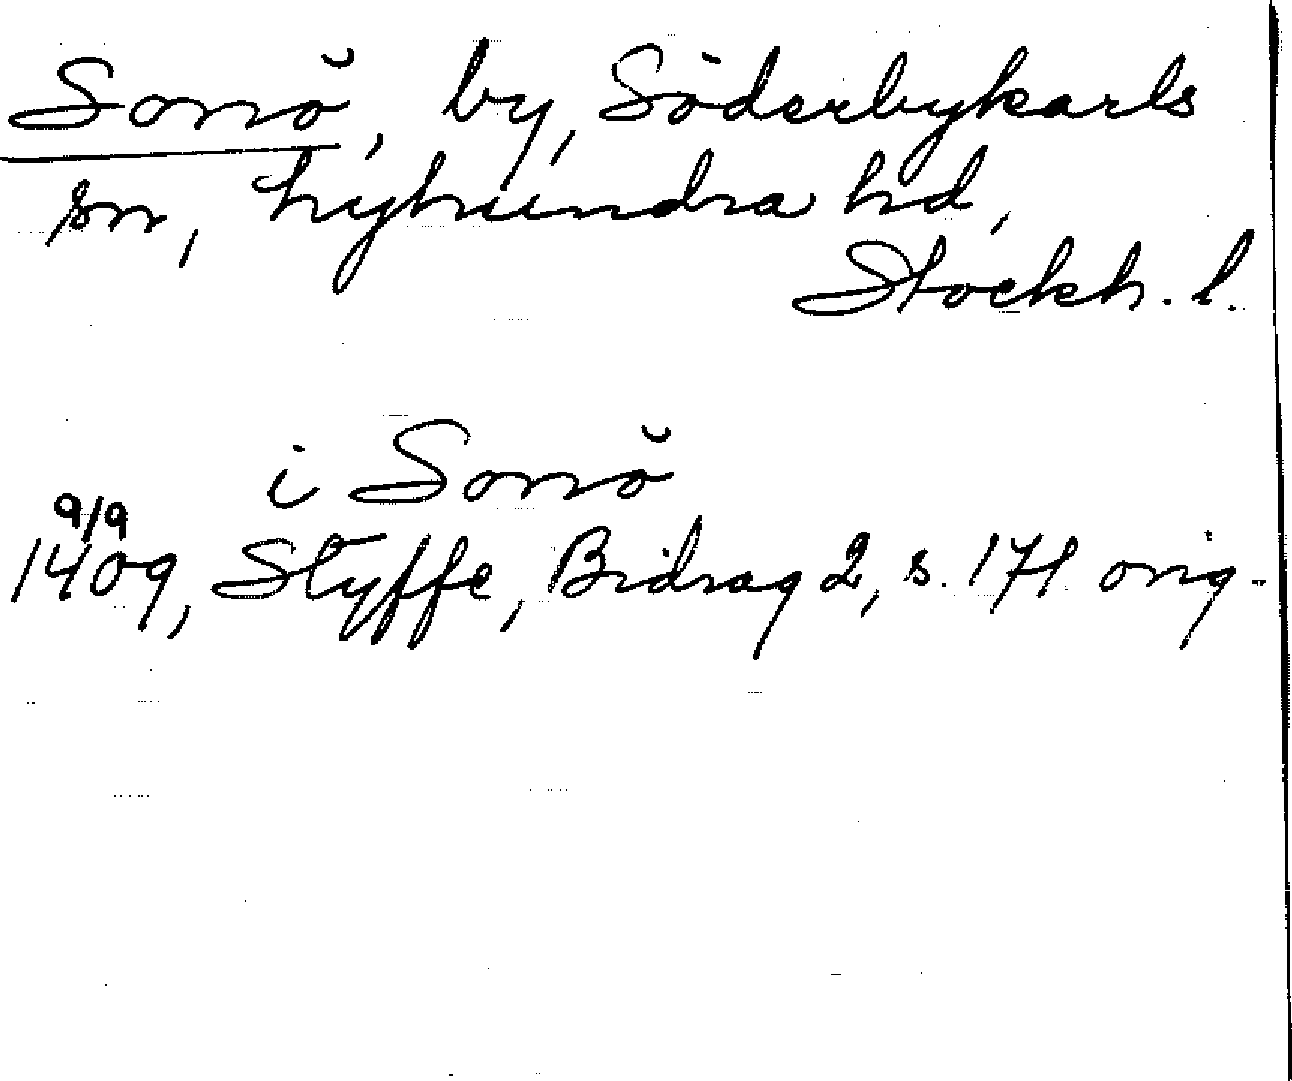 Sonö, by, Söderbykarls
sn, Lyhundra hd,
Stockh. l.
i Sonö
9/9
1409, Styffe, Bidrag 2, s. 171 orig.